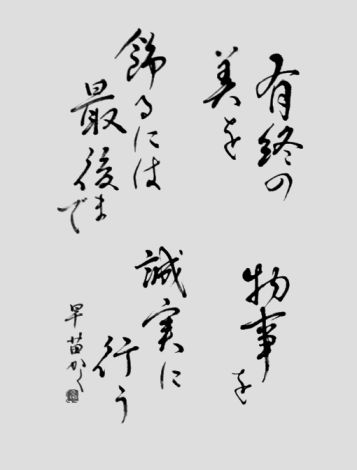 有終の
美を
飾るには
最後まで
物事を
誠実に
行う
早苗かく